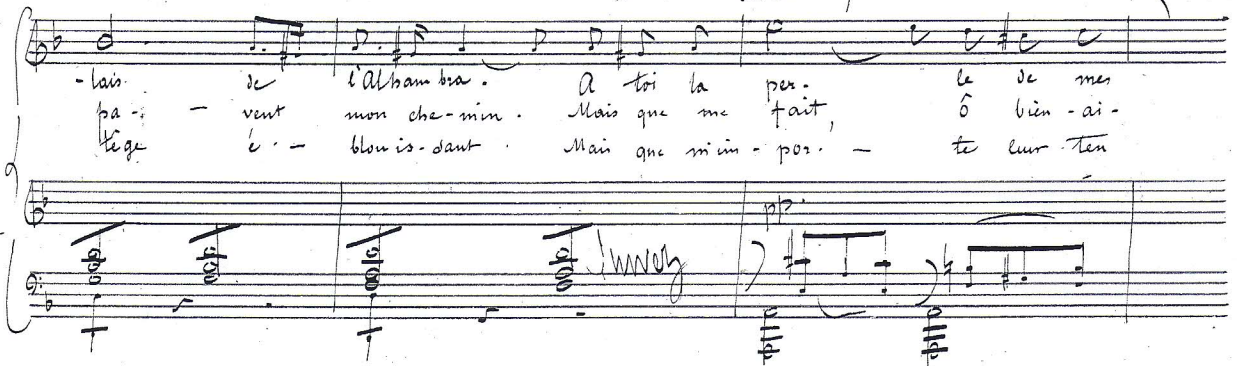 -lais de l'Alham bra. A toi la per- le de mes
pa-- - vent mon che-min. Mais que me fait, ô bien-ai-
tège é-- blouis-sant. Mais que m'im-por-- te leur ten
pp.
Suivez